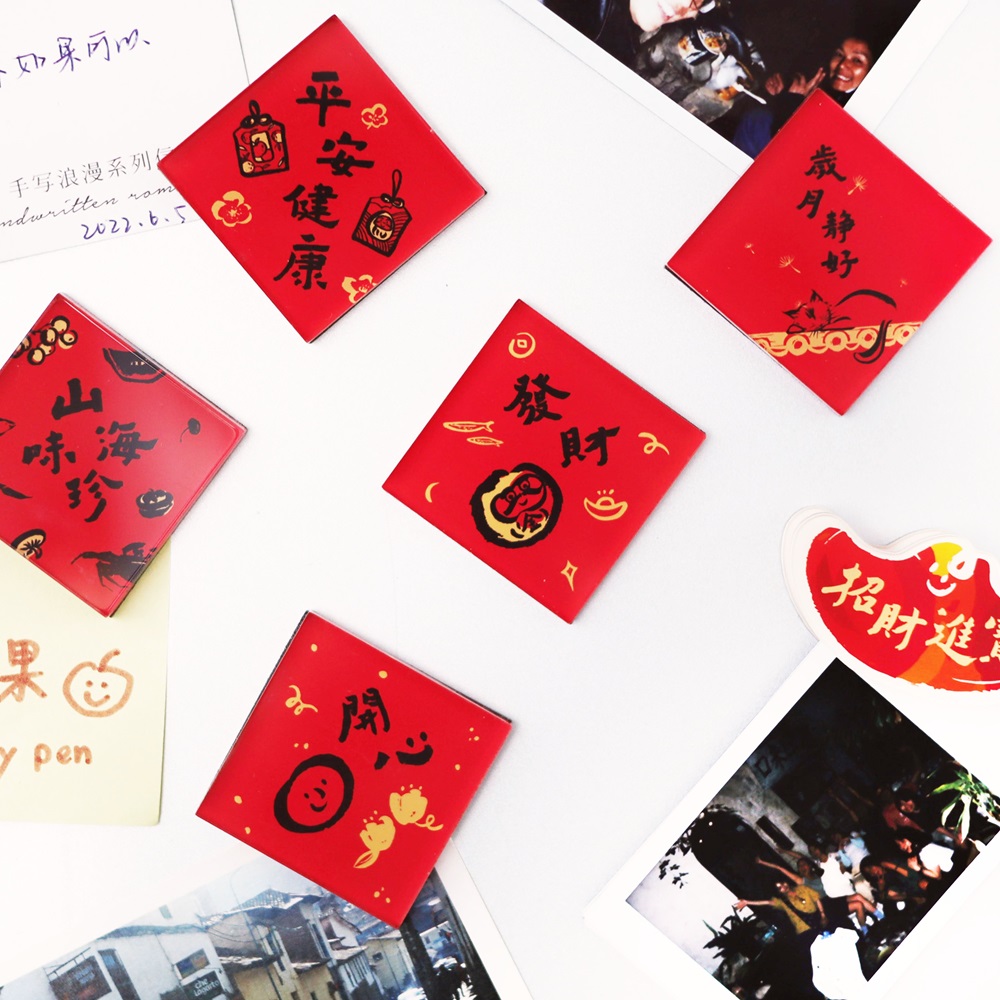 如果可以
手写浪漫系列
2022.6.5
平安健康
歲月靜好
山海
味珍
發財
招財進寶
果
pen
開心